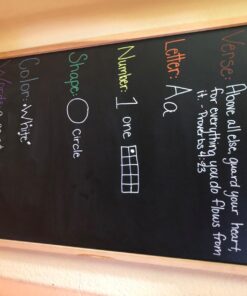 Verse: Above all else, guard your heart
for everything you do flows from
it. - Proverbs 4:23
Letter: Aa
Number: 1 one
Shape: circle
Color: White